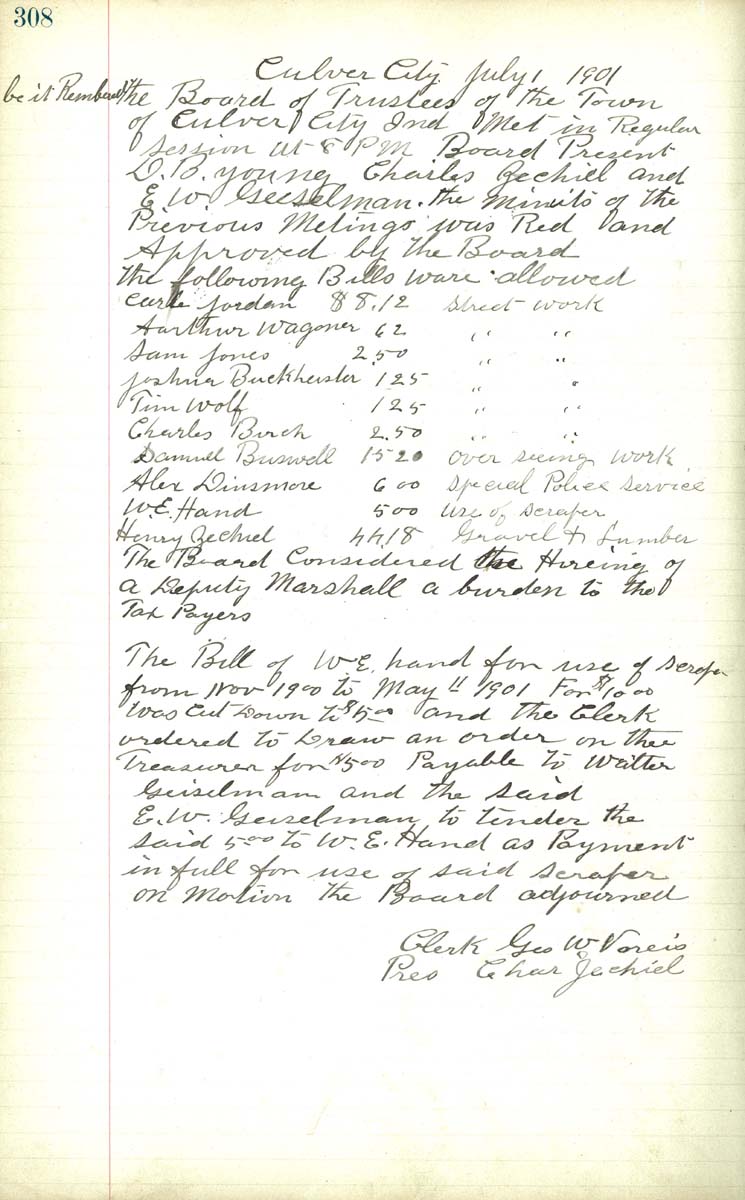 308
Culver City July 1 1901
be it Rembered the Board of Trustees of the Town
of Culver City Ind Met in Regular
Session at 8 P M Board Present
D. B. Young Charles Zechiel and
E W Geiselman. the Minits of the
Previous Metings was Red and
Approved by the Board
the following Bills ware allowed
Carl Jordan $8.12 Street work
Aarthur Wagoner 62 " "
Sam Jones 2.50 " "
Joshua Buckheister 1.25 " "
Tim Wolf 1 25 " "
Charles Birch 2.50 " "
Samuel Buswell 15 20 over seeing work
Alex Dinsmore 6 00 Special Police Service
W.E. Hand 5 00 use of Scraper
Henry Zechiel 44.18 Gravel & Lumber
The Board Considered the Hireing of
a Deputy Marshall a burden to the
Tax Payers
The Bill of W.E. hand for use of Scraper
from Nov 1900 to May 11 1901 For $10 00
Was Cut Down to $5 00 and the Clerk
ordered to Draw an order on thee
Treasurer for $5 00 Payable to Walter
Geiselman and the said
E. W. Geiselman to tender the
said 5 00 to W. E. Hand as Payment
in full for use of said Scraper
on Motion the Board adjourned
Clerk Geo W Voreis
Pres Chas Zechiel